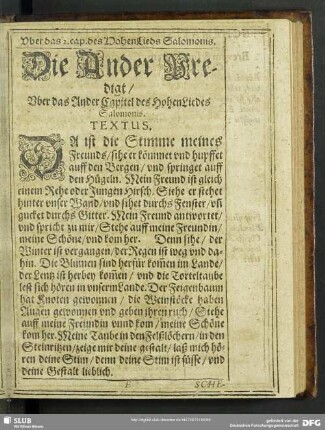 Vber das 2. cap. des Hohen Lieds Salomonis.
Die Ander Pre-
digt/
Vber das Ander Capitel des Hohen Liedes
Salomonis.
TEXTUS.
DA ist die Stimme meines
Freunds/ sihe er kömmet vnd hupffet
auff den Bergen/ vnd springet auff
den Hügeln. Mein Freund ist gleich
einem Rehe oder Jungen Hirsch. Siehe er stehet
hinter vnser Wand/ vnd sihet durchs Fenster/ vñ
gucket durchs Gitter. Mein Freund antwortet/
vnd spricht zu mir/ Stehe auff meine Freundin/
meine Schöne/ vnd kom her. Denn sihe/ der
Winter ist vergangen/ der Regen ist weg vnd da-
hin. Die Blumen sind herfür kom̃en im Lande/
der Lentz ist herbey kom̃en/ vnd die Torteltaube
lest sich hören in vnserm Lande. Der Feigenbaum
hat Knoten gewonnen/ die Weinstöcke haben
Augen gewonnen vnd geben jhren ruch/ Stehe
auff meine Freundin vnnd kom/ meine Schöne
kom her. Meine Taube in den Felßlöchern/ in den
Steinritzen/ zeige mir deine gestalt/ laß mich hö-
ren deine Stim/ denn deine Stim ist süsse/ vnd
deine Gestalt lieblich.
SCHE-
SLUB
Wir führen Wissen.
gefördert von der
Deutschen Forschungsgemeinschaft
DFG